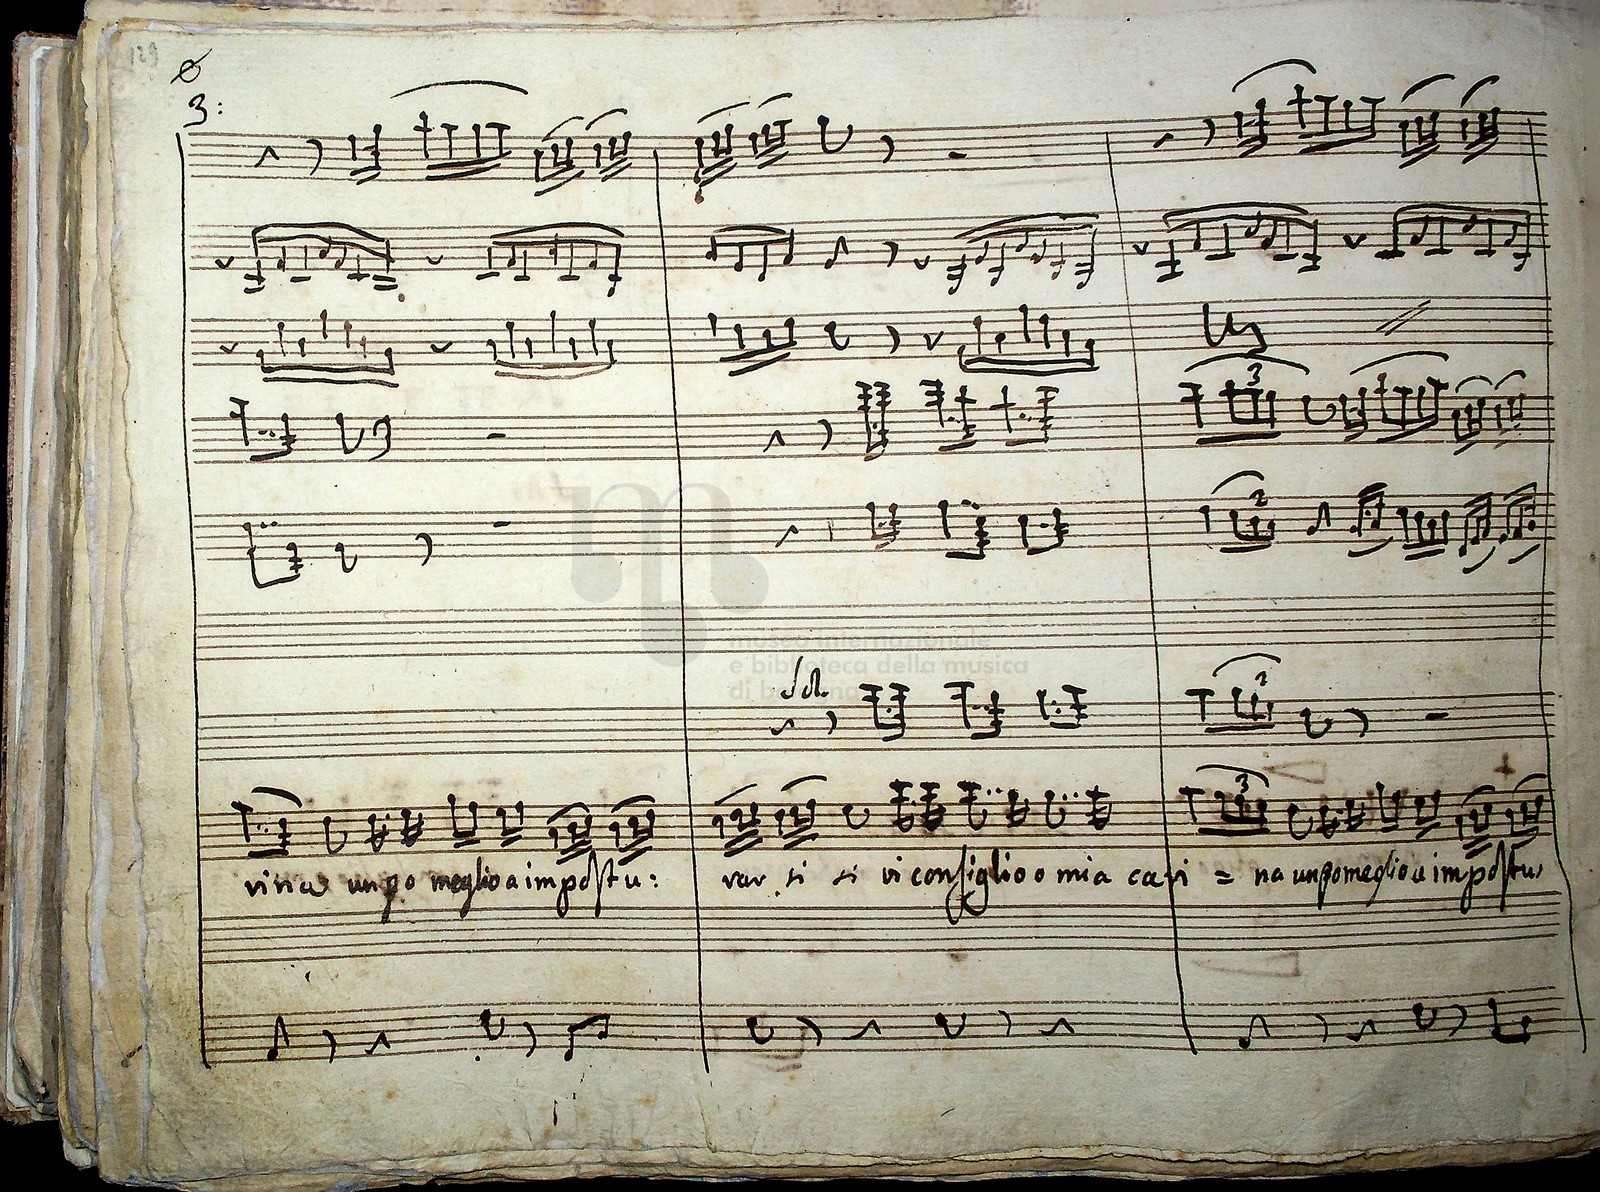 129
3:
museo internazionale
e biblioteca della musica
di bologna
Sol.
3
3
vina un po meglio a impostu:
rar si si vi consiglio o mia cari = na un po meglio a impostu